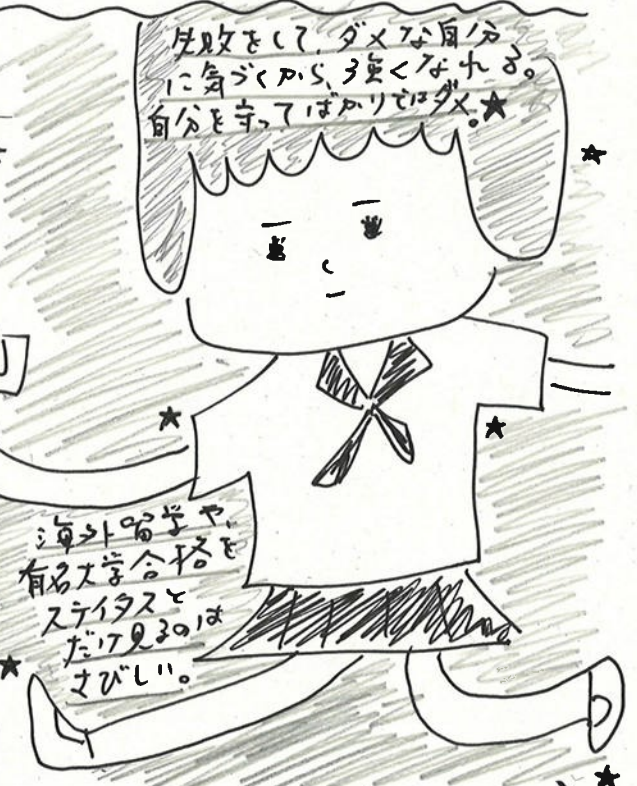 失敗をして、ダメな自分
に気づくから、強くなれる。
自分を守ってばかりではダメ。★
海外留学や、
有名大学合格を
ステイタスと
だけ見るのは
さびしい。